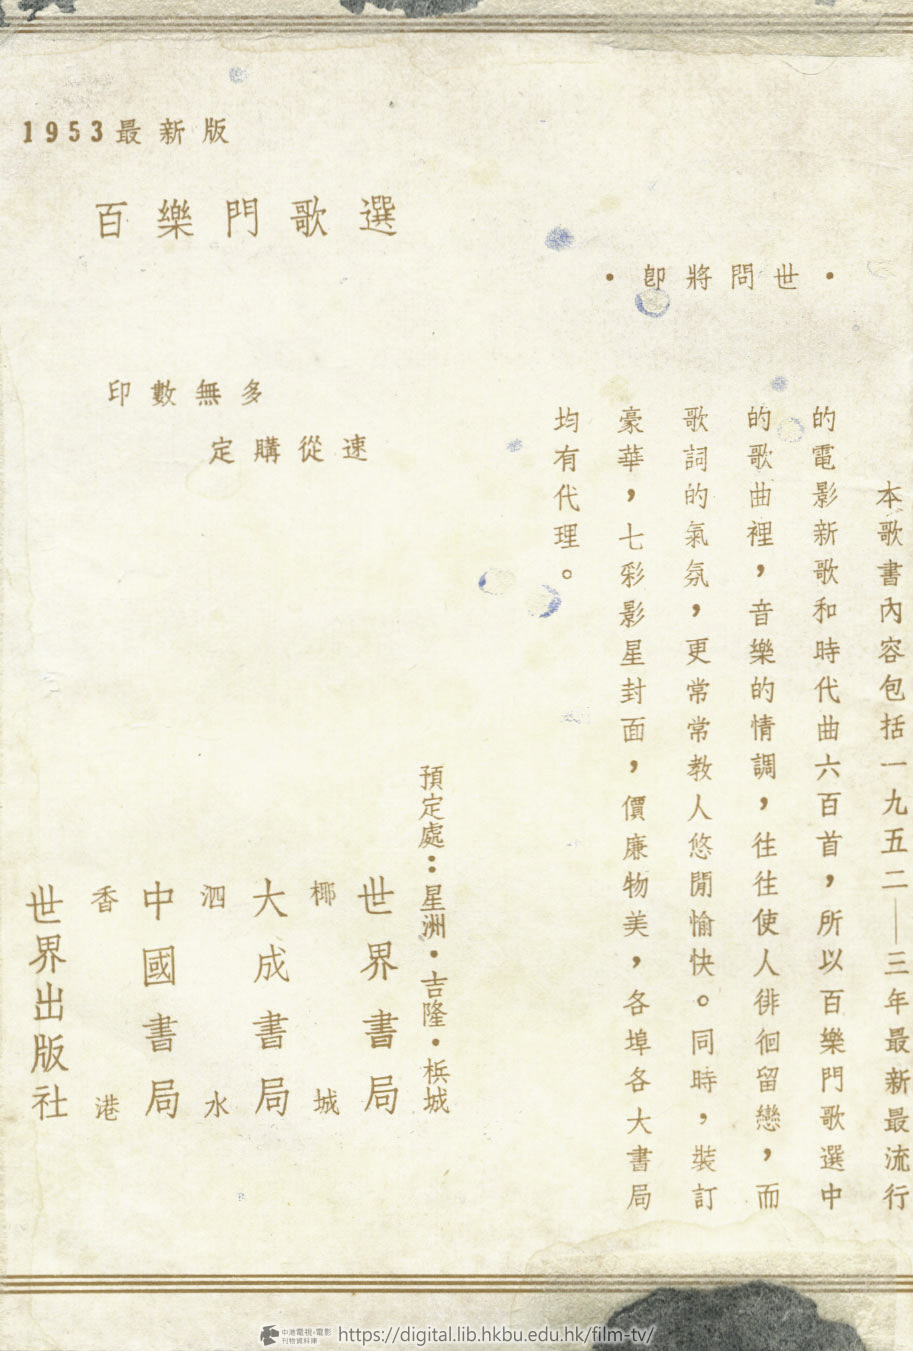 1953最新版
百樂門歌選
•即將問世•
本歌書內容包括一九五二—三年最新最流行
的電影新歌和時代曲六百首，所以百樂門歌選中
的歌曲裡，音樂的情調，往往使人徘徊留戀，而
歌詞的氣氛，更常常教人悠閒愉快。同時，裝訂
豪華，七彩影星封面，價廉物美，各埠各大書局
均有代理。
印數無多
定購從速
預定處：星洲•吉隆•梹城
世界書局
椰城
大成書局
泗水
中國書局
香港
世界出版社
中港電視•電影
刊物資料庫
https://digital.lib.hkbu.edu.hk/film-tv/